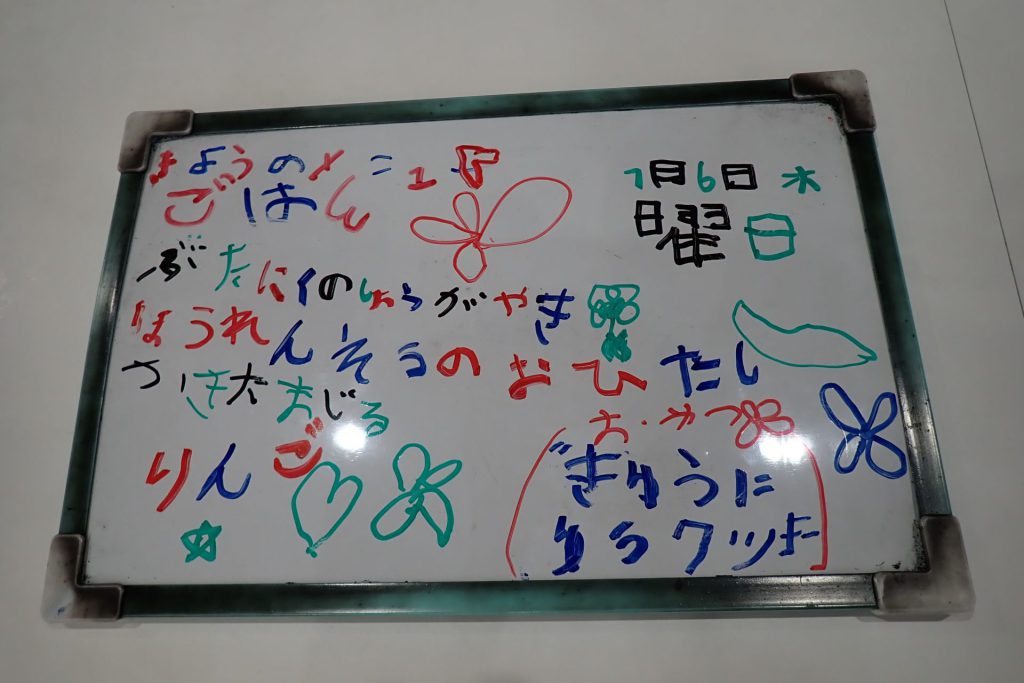 きょうのメニュー
ごはん
7月6日 木
曜日
ぶたにくのしょうがやき
ほうれんそうのおひたし
りんご
おやつ
ぎゅうに
ゅうクッキー